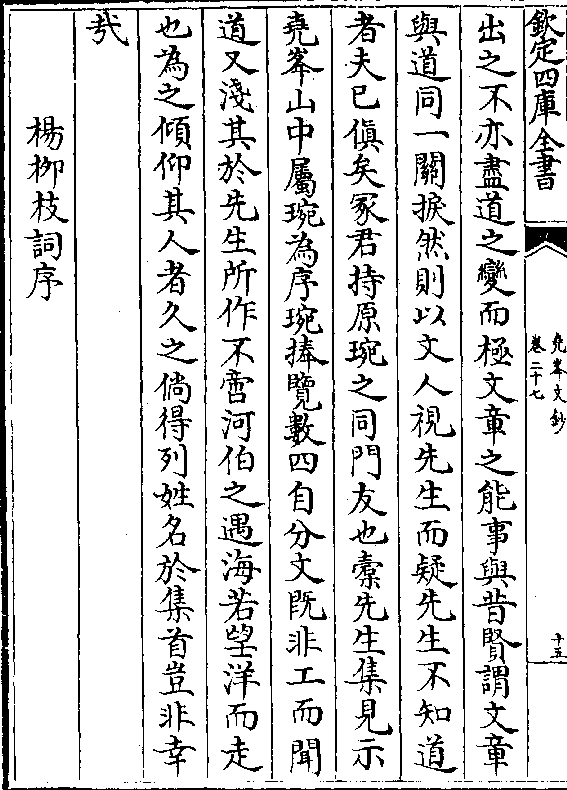 欽定四庫全書
堯峯文鈔
卷二十七
十五
出之不亦盡道之變而極文章之能事與昔賢謂文章
與道同一關捩然則以文人視先生而疑先生不知道
者夫已傎矣冢君持原琬之同門友也橐先生集見示
堯峯山中屬琬為序琬捧覽數四自分文既非工而聞
道又淺其於先生所作不啻河伯之遇海若望洋而走
也為之傾仰其人者久之倘得列姓名於集首豈非幸
㢤
楊柳枝詞序